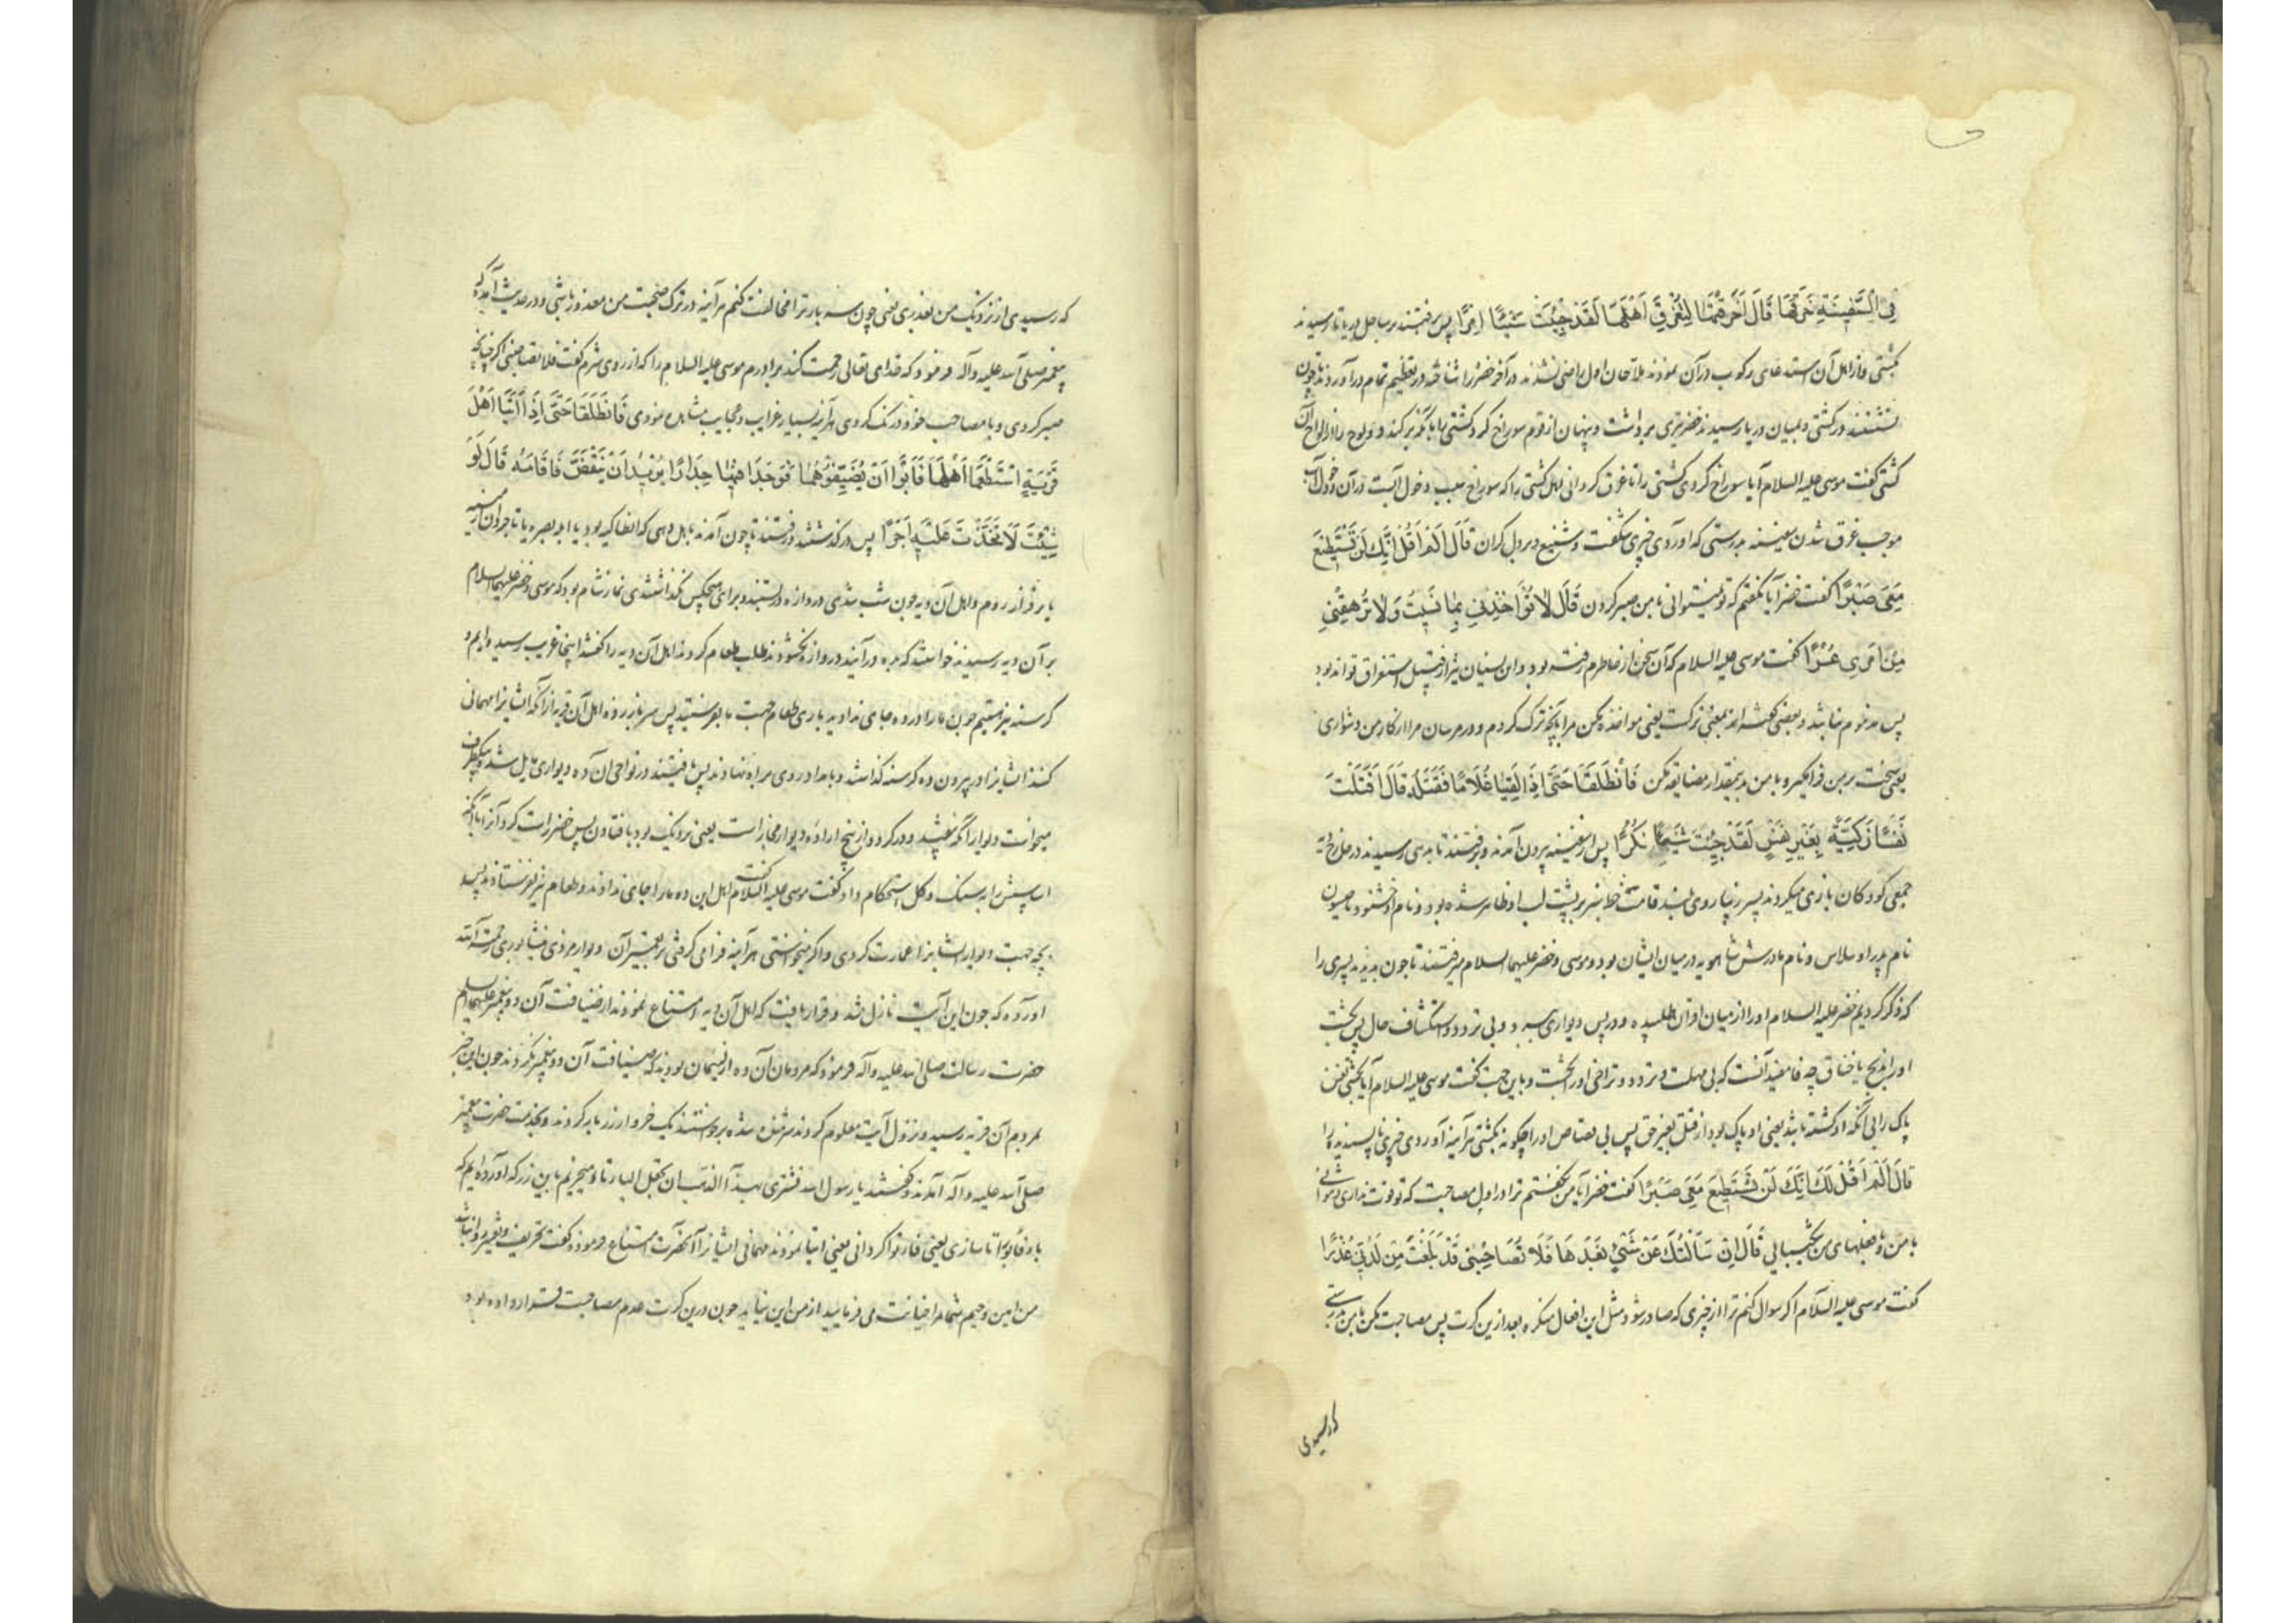 فِي السَّفِينَةِ خَرَقَهَا قَالَ أَخَرَقْتَهَا لِتُغْرِقَ أَهْلَهَا لَقَدْ جِئْتَ شَيْئًا إِمْرًا پس برفتند بر ساحل دریا تا رسیدند
بکشتی و از اهل آن استدعای رکوب در آن نمودند ملاحان اول راضی نشدند در آخر خضر را شناخته در تعظیم تمام درآوردند چون
نشستند در کشتی و بمیان دریا رسیدند خضر تبری برداشت و پنهان از قوم سوراخ کرد کشتی را بآنکه برکند دو لوح را از الواح آن
کشتی گفت موسی علیه السلام آیا سوراخ کردی کشتی را تا غرق کردانی اهل کشتی را که سوراخ سبب دخول آبست در آن و دخول آب
موجب غرق شدن سفینه بدرستی که آوردی چیزی شگفت و شنیع و بر دل کران قَالَ أَلَمْ أَقُلْ إِنَّكَ لَنْ تَسْتَطِيعَ
مَعِيَ صَبْرًا گفت خضر آیا نگفتم که تو نمیتوانی با من صبر کردن قَالَ لَا تُؤَاخِذْنِي بِمَا نَسِيتُ وَلَا تُرْهِقْنِي
مِنْ أَمْرِي عُسْرًا گفت موسی علیه السلام که آن سخن از خاطرم رفته بود و این نسیان نیز از قبیل استغراق تواند بود
پس مذموم نباشد و بعضی گفته اند بمعنی ترکست یعنی مواخذه مکن مرا بآنچه ترک کردم و در مرسان مرا از کار من دشواری
یعنی سخت بر من فرا مگیر و با من بدینمقدار مضایقه مکن فَانْطَلَقَا حَتَّى إِذَا لَقِيَا غُلَامًا فَقَتَلَهُ قَالَ أَقَتَلْتَ
نَفْسًا زَكِيَّةً بِغَيْرِ نَفْسٍ لَقَدْ جِئْتَ شَيْئًا نُكْرًا پس از سفینه بیرون آمدند و برفتند تا بدهی رسیدند در خارج دیه
جمعی کودکان بازی میکردند پسر زیبا روی بلند قامت خط سبز بر پشت لب او ظاهر شده بود و نام او خشنود یا حیسون
نام پدر او سلاس و نام مادرش شاهویه در میان ایشان بود و موسی و خضر علیهما السلام میرفتند تا چون بدیدند پسری را
که ذکر کردیم خضر علیه السلام او را از میان اقران طلبیده و در پس دیواری برد و بی تردد و استکشاف حال پس بکشت
او را بذبح یا خناق چه فا مفید آنست که بی مهلت و تردد و تراخی او را بکشت و باین جهت گفت موسی علیه السلام آیا بکشتی نفس
پاک را بی آنکه او کشته باشد یعنی او پاک بود از قتل بغیر حق پس بی قصاص او را چگونه بکشتی هرآینه آوردی چیزی ناپسندیده را
قَالَ أَلَمْ أَقُلْ لَكَ إِنَّكَ لَنْ تَسْتَطِيعَ مَعِيَ صَبْرًا گفت خضر آیا من نگفتم ترا در اول مصاحبت که تو قوت نداری و نتوانی
با من و با فعلهای من شکیبایی قَالَ إِنْ سَأَلْتُكَ عَنْ شَيْءٍ بَعْدَهَا فَلَا تُصَاحِبْنِي قَدْ بَلَغْتَ مِنْ لَدُنِّي عُذْرًا
گفت موسی علیه السلام اگر سوال کنم ترا از چیزی که صادر شود مثل این افعال منکره بعد از این کرت پس مصاحبت مکن با من بدرستی
که رسیدی
که رسیدی از نزدیک من بعذری یعنی چون سه بار ترا مخالفت کنم هرآینه در ترک صحبت من معذور باشی و در حدیث آمده که
پیغمبر صلی الله علیه وآله فرمود که خدای تعالی رحمت کند برادرم موسی علیه السلام را که از روی شرم گفت فلا تصاحبنی اگر چنانچه
صبر کردی و با مصاحب خود درنگ کردی هرآینه بسیار غرایب و عجایب مشاهده نمودی فَانْطَلَقَا حَتَّى إِذَا أَتَيَا أَهْلَ
قَرْيَةٍ اسْتَطْعَمَا أَهْلَهَا فَأَبَوْا أَنْ يُضَيِّفُوهُمَا فَوَجَدَا فِيهَا جِدَارًا يُرِيدُ أَنْ يَنْقَضَّ فَأَقَامَهُ قَالَ لَوْ
شِئْتَ لَاتَّخَذْتَ عَلَيْهِ أَجْرًا پس در گذشتند و رفتند تا چون آمدند باهل دهی که انطاکیه بود یا ابله بصره یا باجروان ارمنیه
یا برقه از روم و اهل آن دیه چون شب شدی دروازه دربستند و برای هیچکس نگذاشتندی نماز شام بود که موسی و خضر علیهما السلام
بر آن دیه رسیدند خواستند که بده درآیند دروازه نگشودند طلب طعام کردند اهل آن دیه را گفتند اینجا غریب رسیده ایم و
گرسنه نیز هستیم چون ما را در ده جای ندادید باری طعام جهت ما بفرستید پس سر باز زدند اهل آن قریه از آنکه ایشانرا مهمانی
کنند ایشانرا در بیرون ده گرسنه گذاشتند و بامداد روی براه نهادند پس یافتند در نواحی آن ده دیواری مایل شده بیکطرف
میخواست دیوار آنکه بیفتد و در گردد از بیخ اراده دیوار مجاز است یعنی نزدیک بود بافتادن پس خضر راست کرد آنرا بآنکه
اساسش را به سنگ و گل استحکام داد گفت موسی علیه السلام اهل این ده ما را جای ندادند و طعام نیز نفرستادند پس
بچه جهت دیوار ایشانرا عمارت کردی و اگر میخواستی هرآینه فرا می گرفتی بر تعمیر آن دیوار مزدی نیشابوری رحمة الله
آورده که چون این آیت نازل شد و قرار یافت که اهل آن دیه امتناع نمودند از ضیافت آن دو پیغمبر علیهما السلام
حضرت رسالت صلی الله علیه وآله فرمود که مردمان آن ده از لئیمان بودند که ضیافت آن دو پیغمبر نکردند چون این خبر
بمردم آن قریه رسید و نزول آیت معلوم کردند شرمنده شده برخواستند یک خروار زر بار کردند و بخدمت حضرت پیغمبر
صلی الله علیه وآله آمدند و گفتند یا رسول الله نشتری بهذا الذهب ان تجعل الباء تاء میخریم باین زر که آورده ایم که
باء فأبوا تا سازی یعنی فأتوا گردانی یعنی اتیا نمودند مهمانی ایشانرا آنحضرت امتناع فرمود و گفت تحریف و تغییر روا نباشد
من امین وحیم شما مرا خیانت می فرمایید از من این نیاید چون درین کرت عدم مصاحبت قرار داده بود